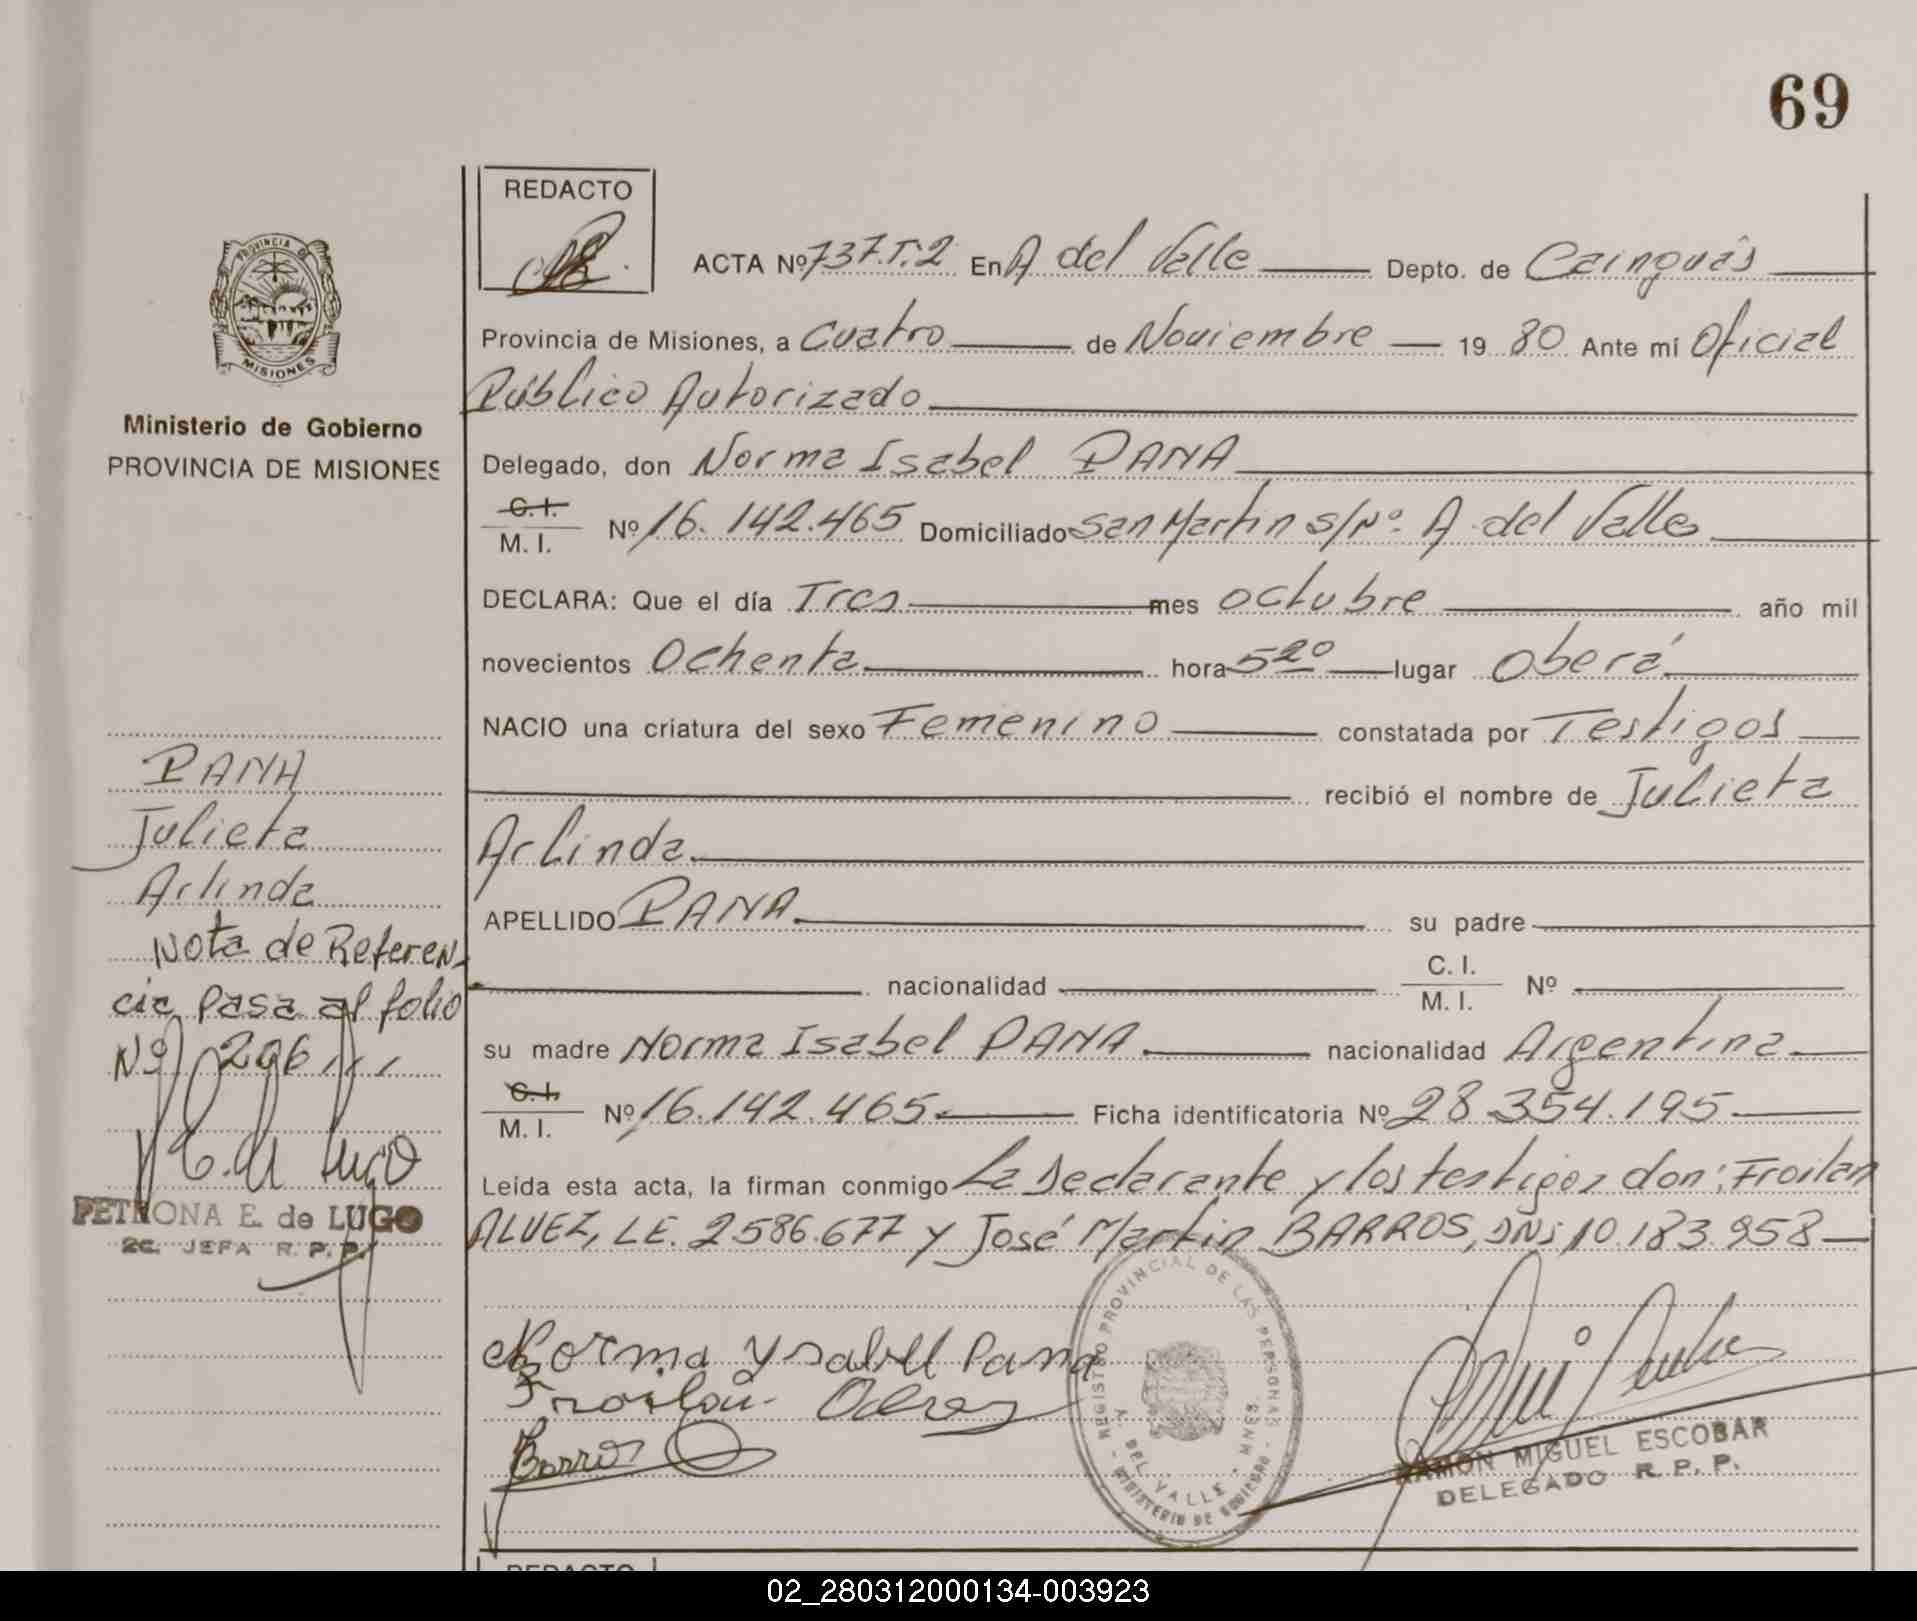 69
REDACTO
ACTA Nº 737.T.2 En A del Valle Depto. de Cainguás
Provincia de Misiones, a Cuatro de Noviembre 19 80 Ante mí Oficial
Público Autorizado
Delegado, don Norma Isabel PANA
C.I. M.I. Nº 16.142.465 Domiciliado San Martin s/Nº A. del Valle
DECLARA: Que el día Tres mes octubre año mil
novecientos Ochenta hora 5 20 lugar Oberá
NACIO una criatura del sexo Femenino constatada por Testigos
recibió el nombre de Julieta
Arlinda
APELLIDO PANA su padre
nacionalidad C.I. M.I. Nº
su madre Norma Isabel PANA nacionalidad Argentina
C.I. M.I. Nº 16.142.465 Ficha identificatoria Nº 28.354.195
Leída esta acta, la firman conmigo La Declarante y los testigos don: Froilan
ALVEZ, LE. 2586.677 y José Martin BARROS, DNI 10.183.958
Norma Ysabel Pana
Froilan
Barros
REGISTRO PROVINCIAL DE LAS PERSONAS
A. DEL VALLE - MNES.
MINISTERIO DE GOBIERNO
RAMON MIGUEL ESCOBAR
DELEGADO R.P.P.
PROVINCIA DE
MISIONES
Ministerio de Gobierno
PROVINCIA DE MISIONES
PANA
Julieta
Arlinda
Nota de Referen-
cia Pasa al folio
Nº 296
PETRONA E. de LUGO
2c. JEFA R.P.P.
REDACTO
02_280312000134-003923